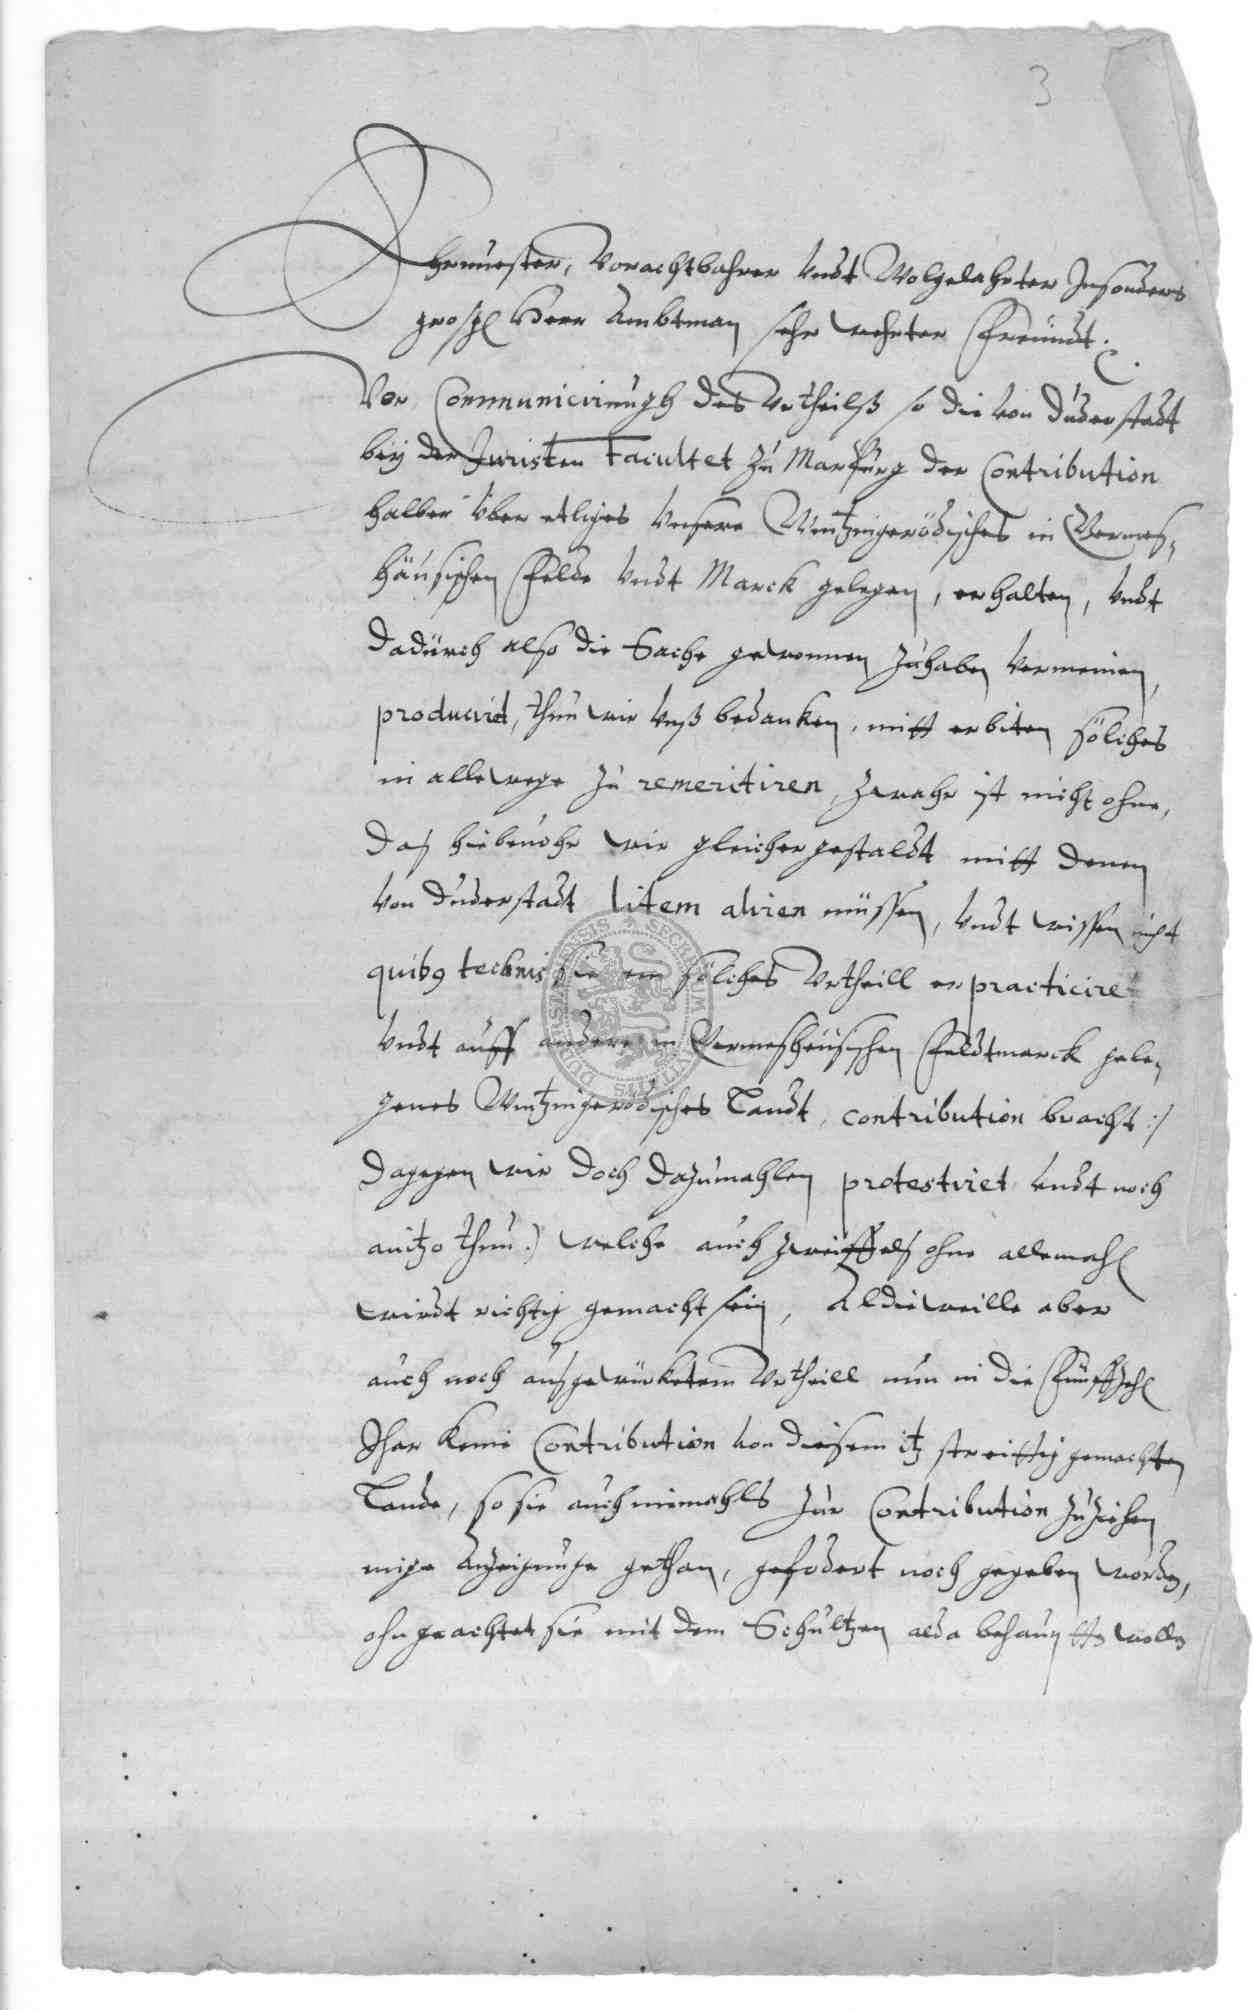 3
Ehrnuester, Vorachtbahrer Vndt Wolgelahrter Insonders
großg. Herr Ambtman sehr wehrter Freundt.
Vor Communicirungh des Vrtheilß so die von Duderstadt
beÿ der Juristen Facultet zu Marpurg der Contribution
halber vber etliges Vnsere Wintzingerödisches in Wermes-
häusischen Felde Vndt Marck gelegen, erhalten, Vndt
dadurch also die Sache gewonnen zuhaben vermeinen,
producirt, thun wir Vnß bedanken, mitt erbiten sölches
in allewege zu remeritiren, zwahr ist nicht ohne,
daß hiebeuohr wir gleichergestaldt mitt denen
von Duderstadt litem aliren müssen, Vndt wissen nicht
quibg technis sie ein sölches Vrtheill erpracticiret
Vndt auff andere in Wermeshäusischen Feldtmarck gele-
genes Wintzingerodisches Landt, contribution bracht :/
dagegen wir doch dazumahlen protestiret Vndt noch
anitzo thun :/ welche auch zweiffelß ohne allemahl
wirdt richtig gemacht sein, Aldieweille aber
auch noch außgewürketem Vrtheill nun in die Fünffzehl
Jhar keine Contribution von diesem itz streittig gemachten
Lande, so sie auch niemahls zur Contribution zuziehen
einige Anzeigunge gethan, gefodert noch gegeben worden,
ohngeachtet sie mit dem Schultzen alda behaupten wollen